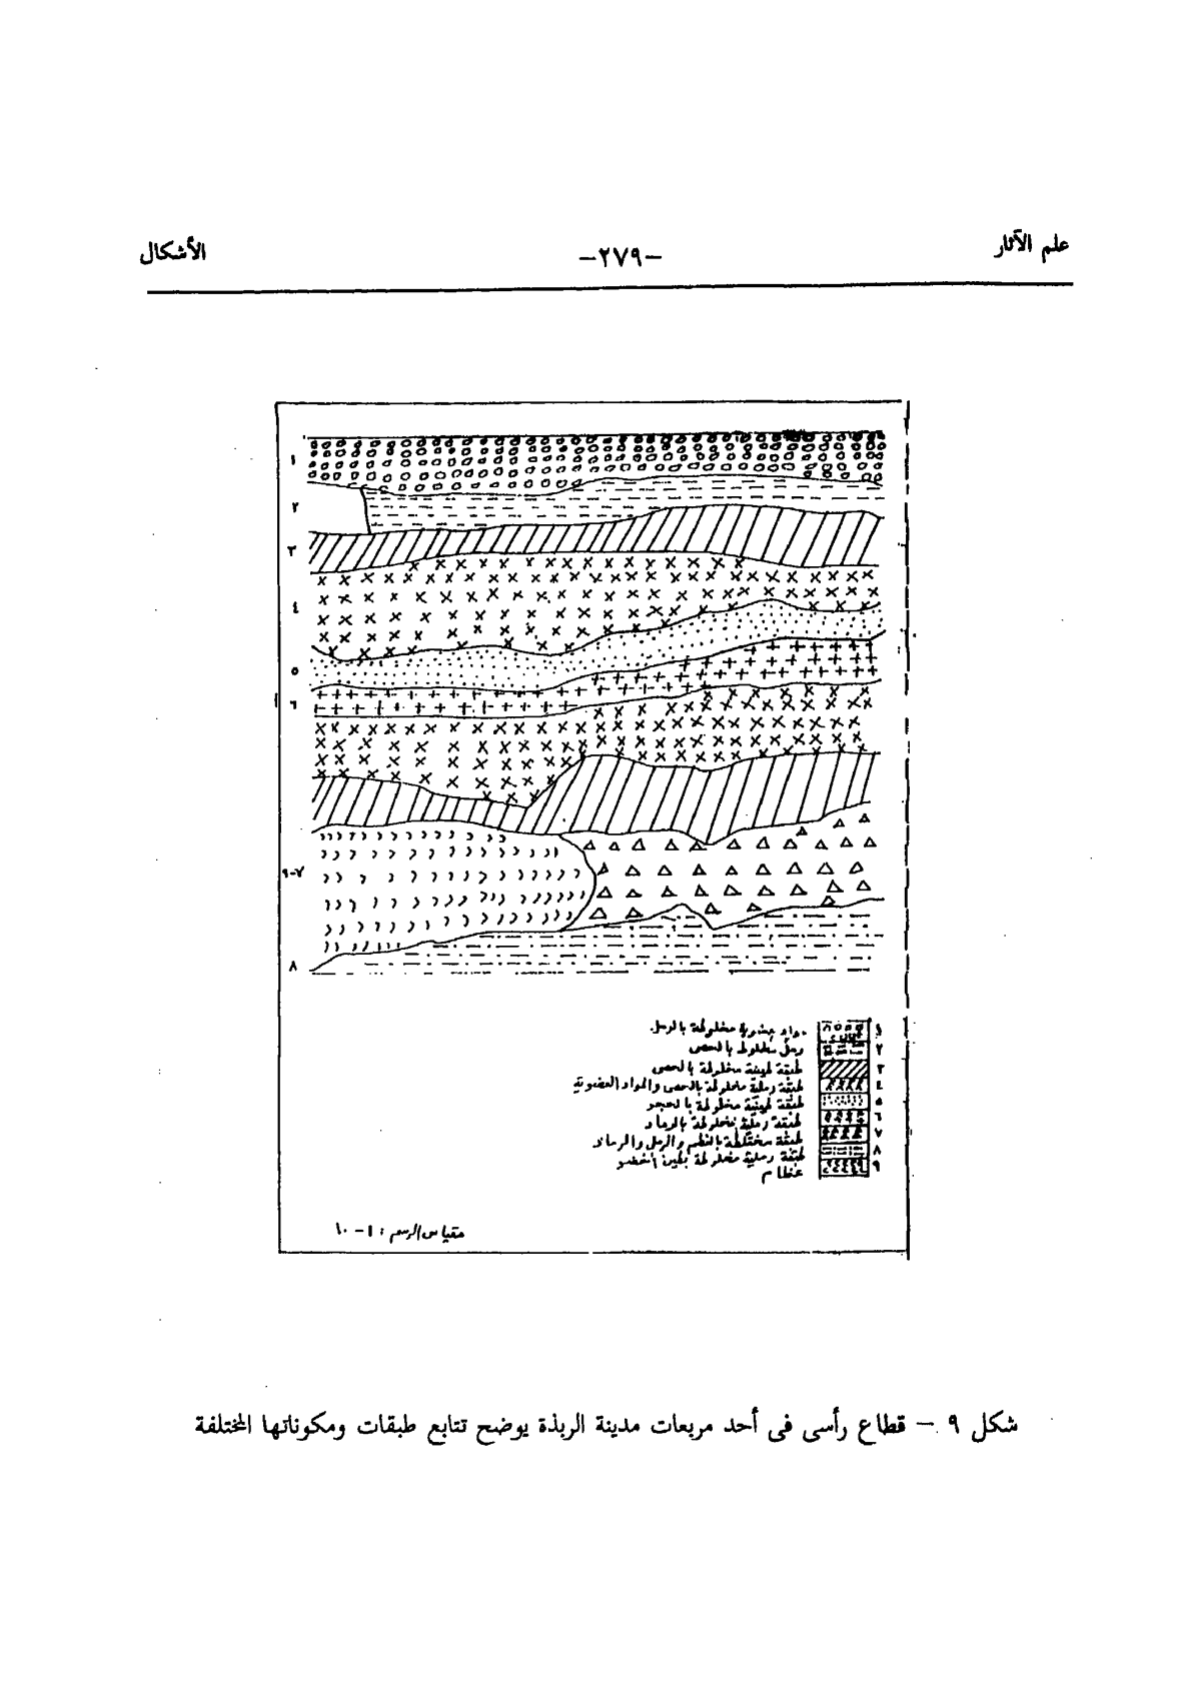 علم الآثار
-٢٧٩-
الأشكال
١
٢
٣
٤
٥
٦
٩-٧
٨
١ مواد عضوية مخلوطة بالرمل
٢ رمل مخلوط بالحصى
٣ طبقة طينية مخلوطة بالحصى
٤ طبقة رملية مخلوطة بالحصى والمواد العضوية
٥ طبقة طينية مخلوطة بالحجر
٦ طبقة رملية مخلوطة بالرماد
٧ طبقة مختلطة والرمل والرماد
٨ طبقة رملية مخلوطة بطين أخضر
٩ عظام
مقياس الرسم : ١-١٠
شكل ٩ - قطاع رأسى فى أحد مربعات مدينة الربذة يوضح تتابع طبقات ومكوناتها المختلفة